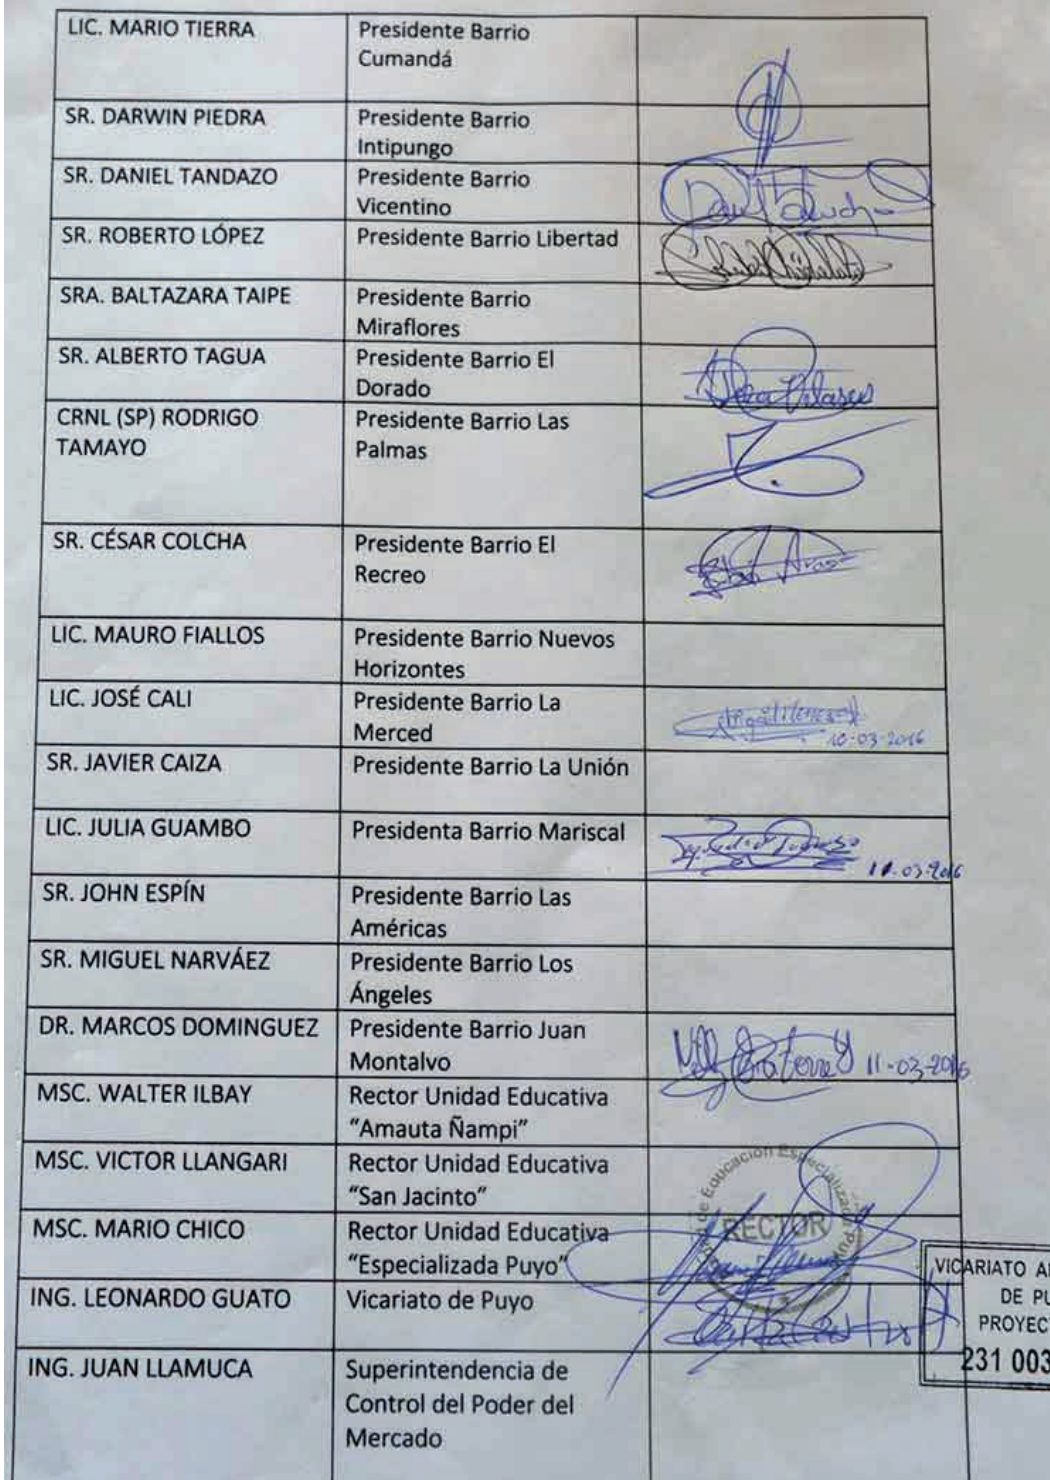 LIC. MARIO TIERRA
Presidente Barrio
Cumandá
SR. DARWIN PIEDRA
Presidente Barrio
Intipungo
SR. DANIEL TANDAZO
Presidente Barrio
Vicentino
SR. ROBERTO LÓPEZ
Presidente Barrio Libertad
SRA. BALTAZARA TAIPE
Presidente Barrio
Miraflores
SR. ALBERTO TAGUA
Presidente Barrio El
Dorado
CRNL (SP) RODRIGO
TAMAYO
Presidente Barrio Las
Palmas
SR. CÉSAR COLCHA
Presidente Barrio El
Recreo
LIC. MAURO FIALLOS
Presidente Barrio Nuevos
Horizontes
LIC. JOSÉ CALI
Presidente Barrio La
Merced
10-03-2016
SR. JAVIER CAIZA
Presidente Barrio La Unión
LIC. JULIA GUAMBO
Presidenta Barrio Mariscal
11-03-2016
SR. JOHN ESPÍN
Presidente Barrio Las
Américas
SR. MIGUEL NARVÁEZ
Presidente Barrio Los
Ángeles
DR. MARCOS DOMINGUEZ
Presidente Barrio Juan
Montalvo
11-03-2016
MSC. WALTER ILBAY
Rector Unidad Educativa
“Amauta Ñampi”
MSC. VICTOR LLANGARI
Rector Unidad Educativa
“San Jacinto”
MSC. MARIO CHICO
Rector Unidad Educativa
“Especializada Puyo”
de Educación Especializada Puyo
RECTOR
ING. LEONARDO GUATO
Vicariato de Puyo
VICARIATO A
DE PU
PROYEC
231 003
ING. JUAN LLAMUCA
Superintendencia de
Control del Poder del
Mercado